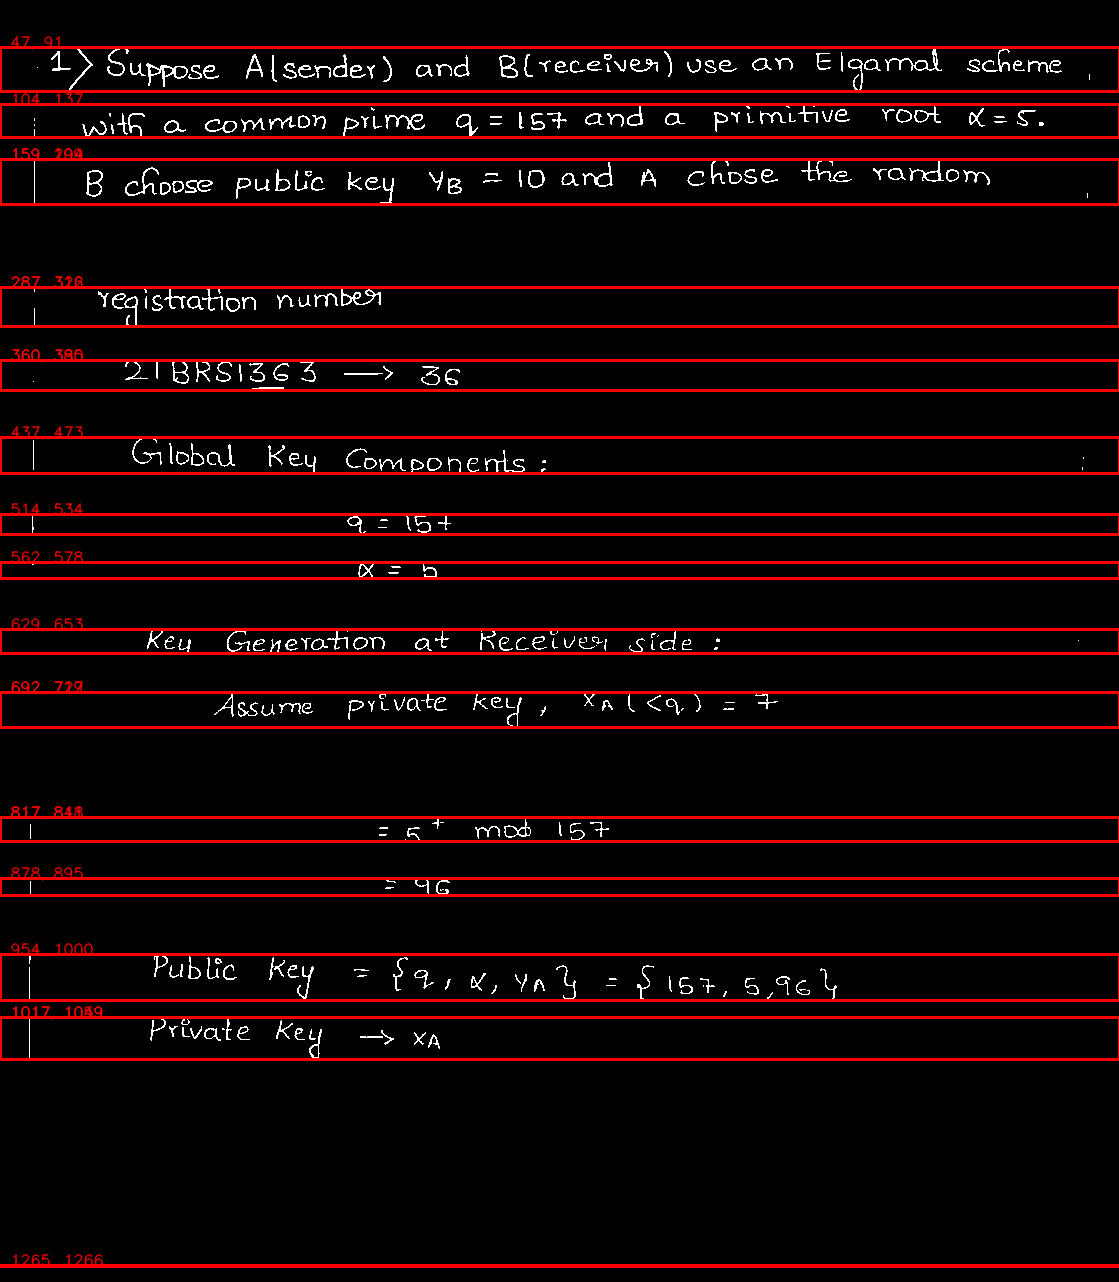 47, 91
1) Suppose A(sender) and B(receiver) use an Elgamal scheme
104, 137
with a common prime q = 157 and a primitive root α = 5.
B choose public key YB = 10 and A chose the random
registration number
21BRS1363 → 36
437, 473
Global Key Components :
514, 534
q = 157
562, 578
α = 5
629, 653
Key Generation at Receiver side :
Assume private key, XA (<q) = 7
= 5⁷ mod 157
878, 895
= 96
954, 1000
Public Key = {q, α, YA} = {157, 5,96}
Private Key → XA
1265, 1266